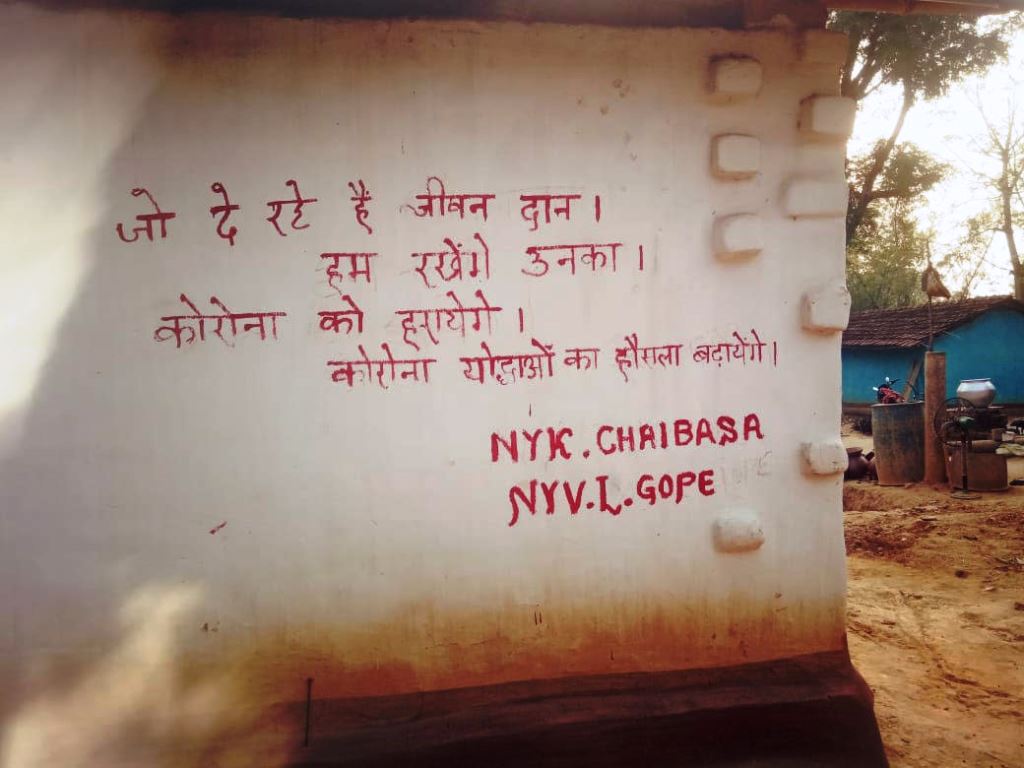 जो दे रहे हैं जीवन दान।
हम रखेंगे उनका।
कोरोना को हरायेगे।
कोरोना योद्धाओं का हौसला बढ़ायेंगे।
NYK. CHAIBASA
NYV. L. GOPE